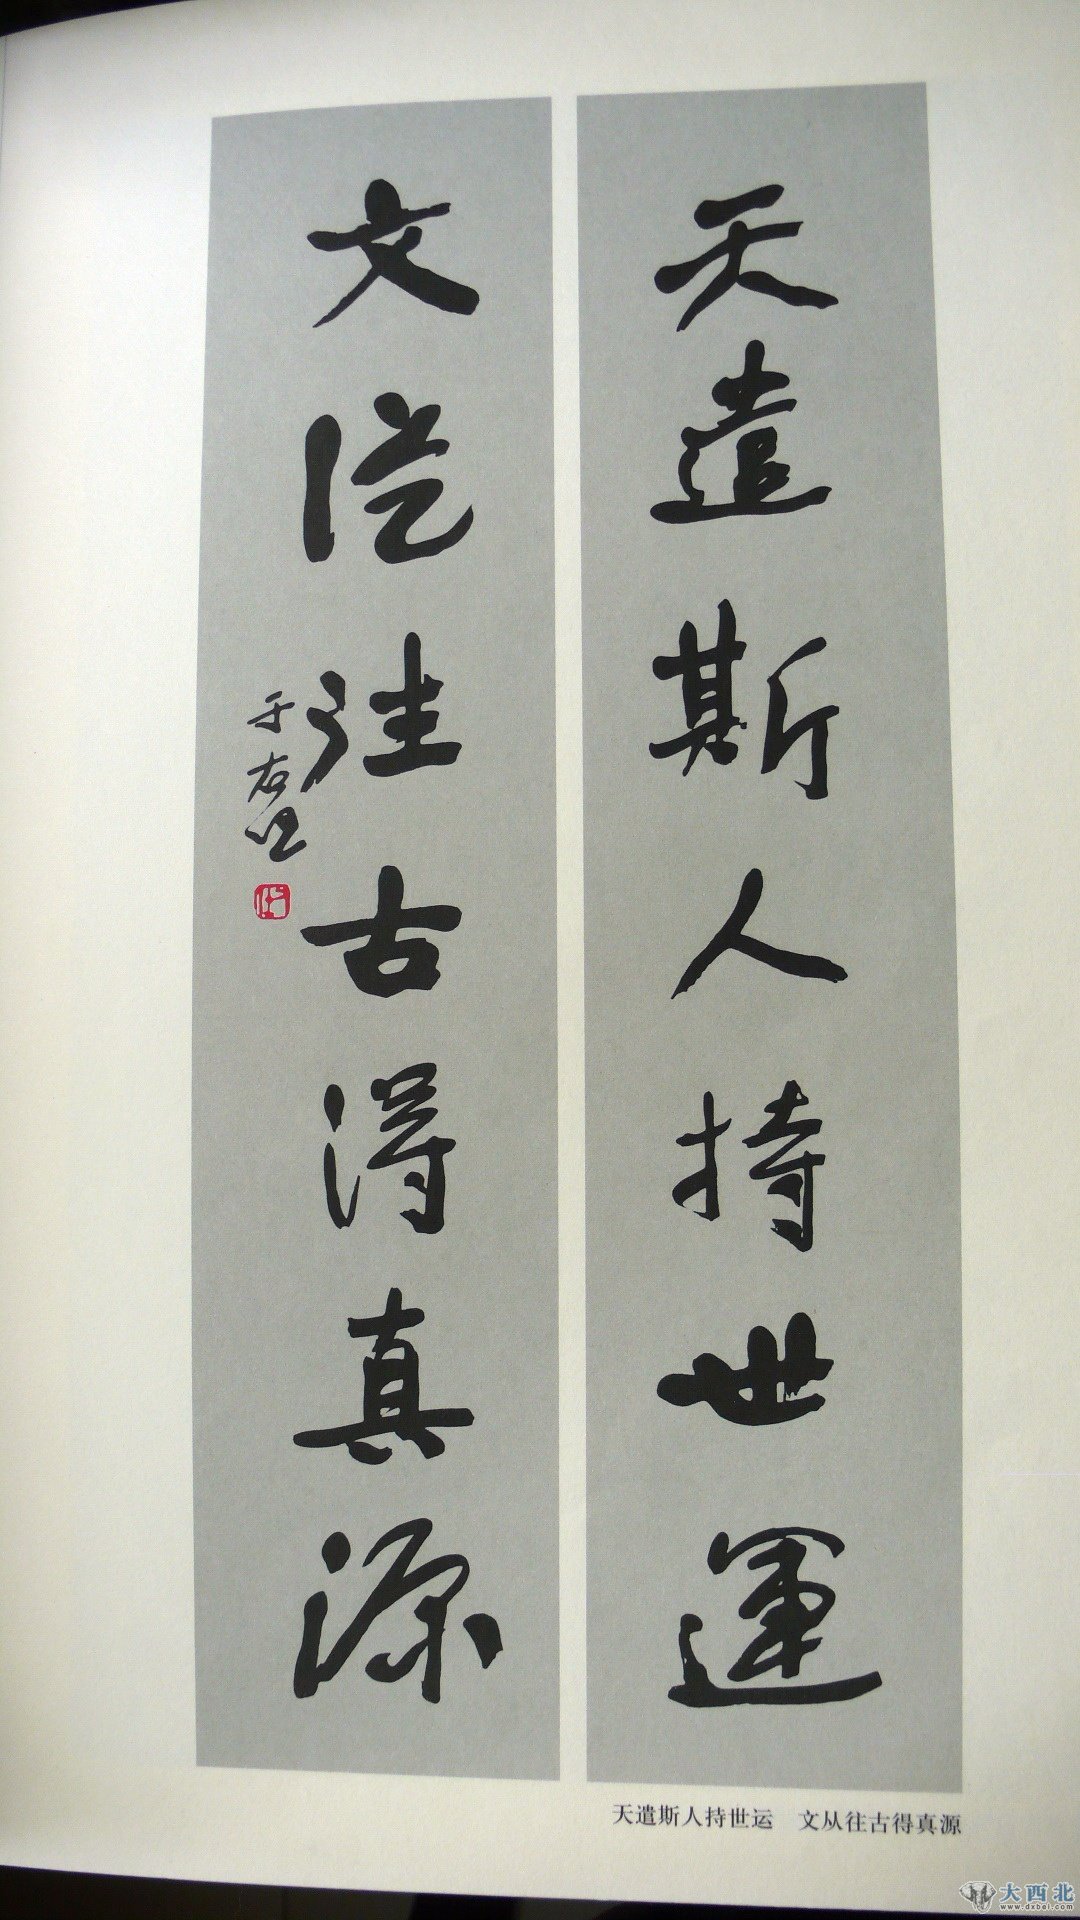 天遣斯人持世運
文從往古得真源
于右任
天遣斯人持世运 文从往古得真源
大西北
www.dxbei.com